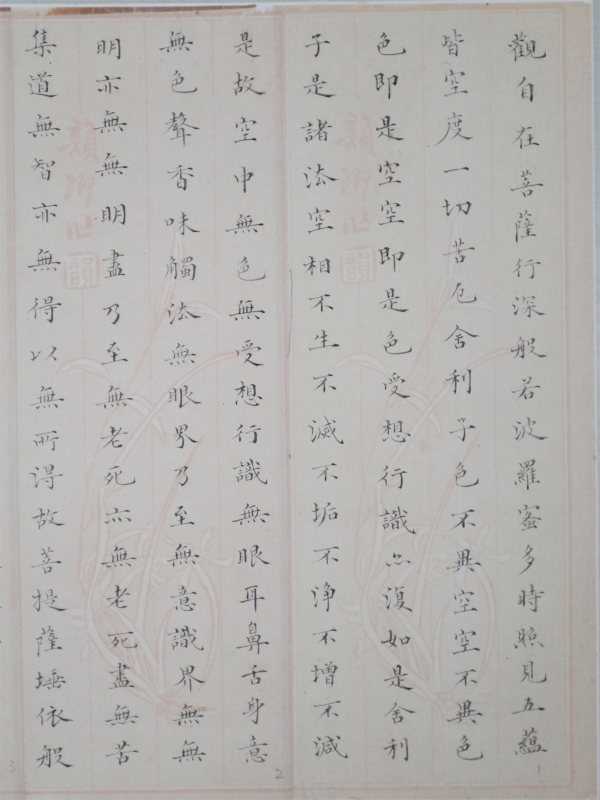 觀自在菩薩行深般若波羅蜜多時照見五蘊
皆空度一切苦厄舍利子色不異空空不異色
色即是空空即是色受想行識亦復如是舍利
子是諸法空相不生不滅不垢不淨不增不減
是故空中無色無受想行識無眼耳鼻舌身意
無色聲香味觸法無眼界乃至無意識界無無
明亦無無明盡乃至無老死亦無老死盡無苦
集道無智亦無得以無所得故菩提薩埵依般
1
2
3